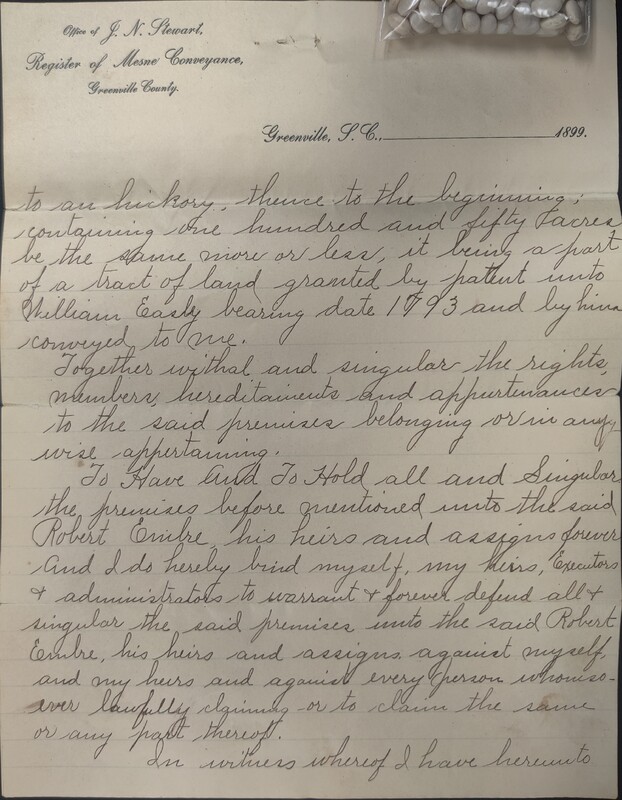 Office of J. N. Stewart,
Register of Mesne Conveyance,
Greenville County.
Greenville, S. C., 1899.
to an hickory, thence to the beginning;
containing one hundred and fifty acres
be the same more or less, it being a part
of a tract of land granted by patent unto
William Easly bearing date 1793 and by him
conveyed to me.
Together withal and singular the rights,
members, hereditaments and appurtenances
to the said premises belonging or in any
wise appertaining.
To Have And To Hold all and Singular
the premises before mentioned unto the said
Robert Embre, his heirs and assigns forever
And I do hereby bind myself, my heirs, Executors
& administrators to warrant & forever defend all &
singular the said premises unto the said Robert
Embre, his heirs and assigns against myself,
and my heirs and against every person whomso-
ever lawfully claiming or to claim the same
or any part thereof.
In witness whereof I have hereunto